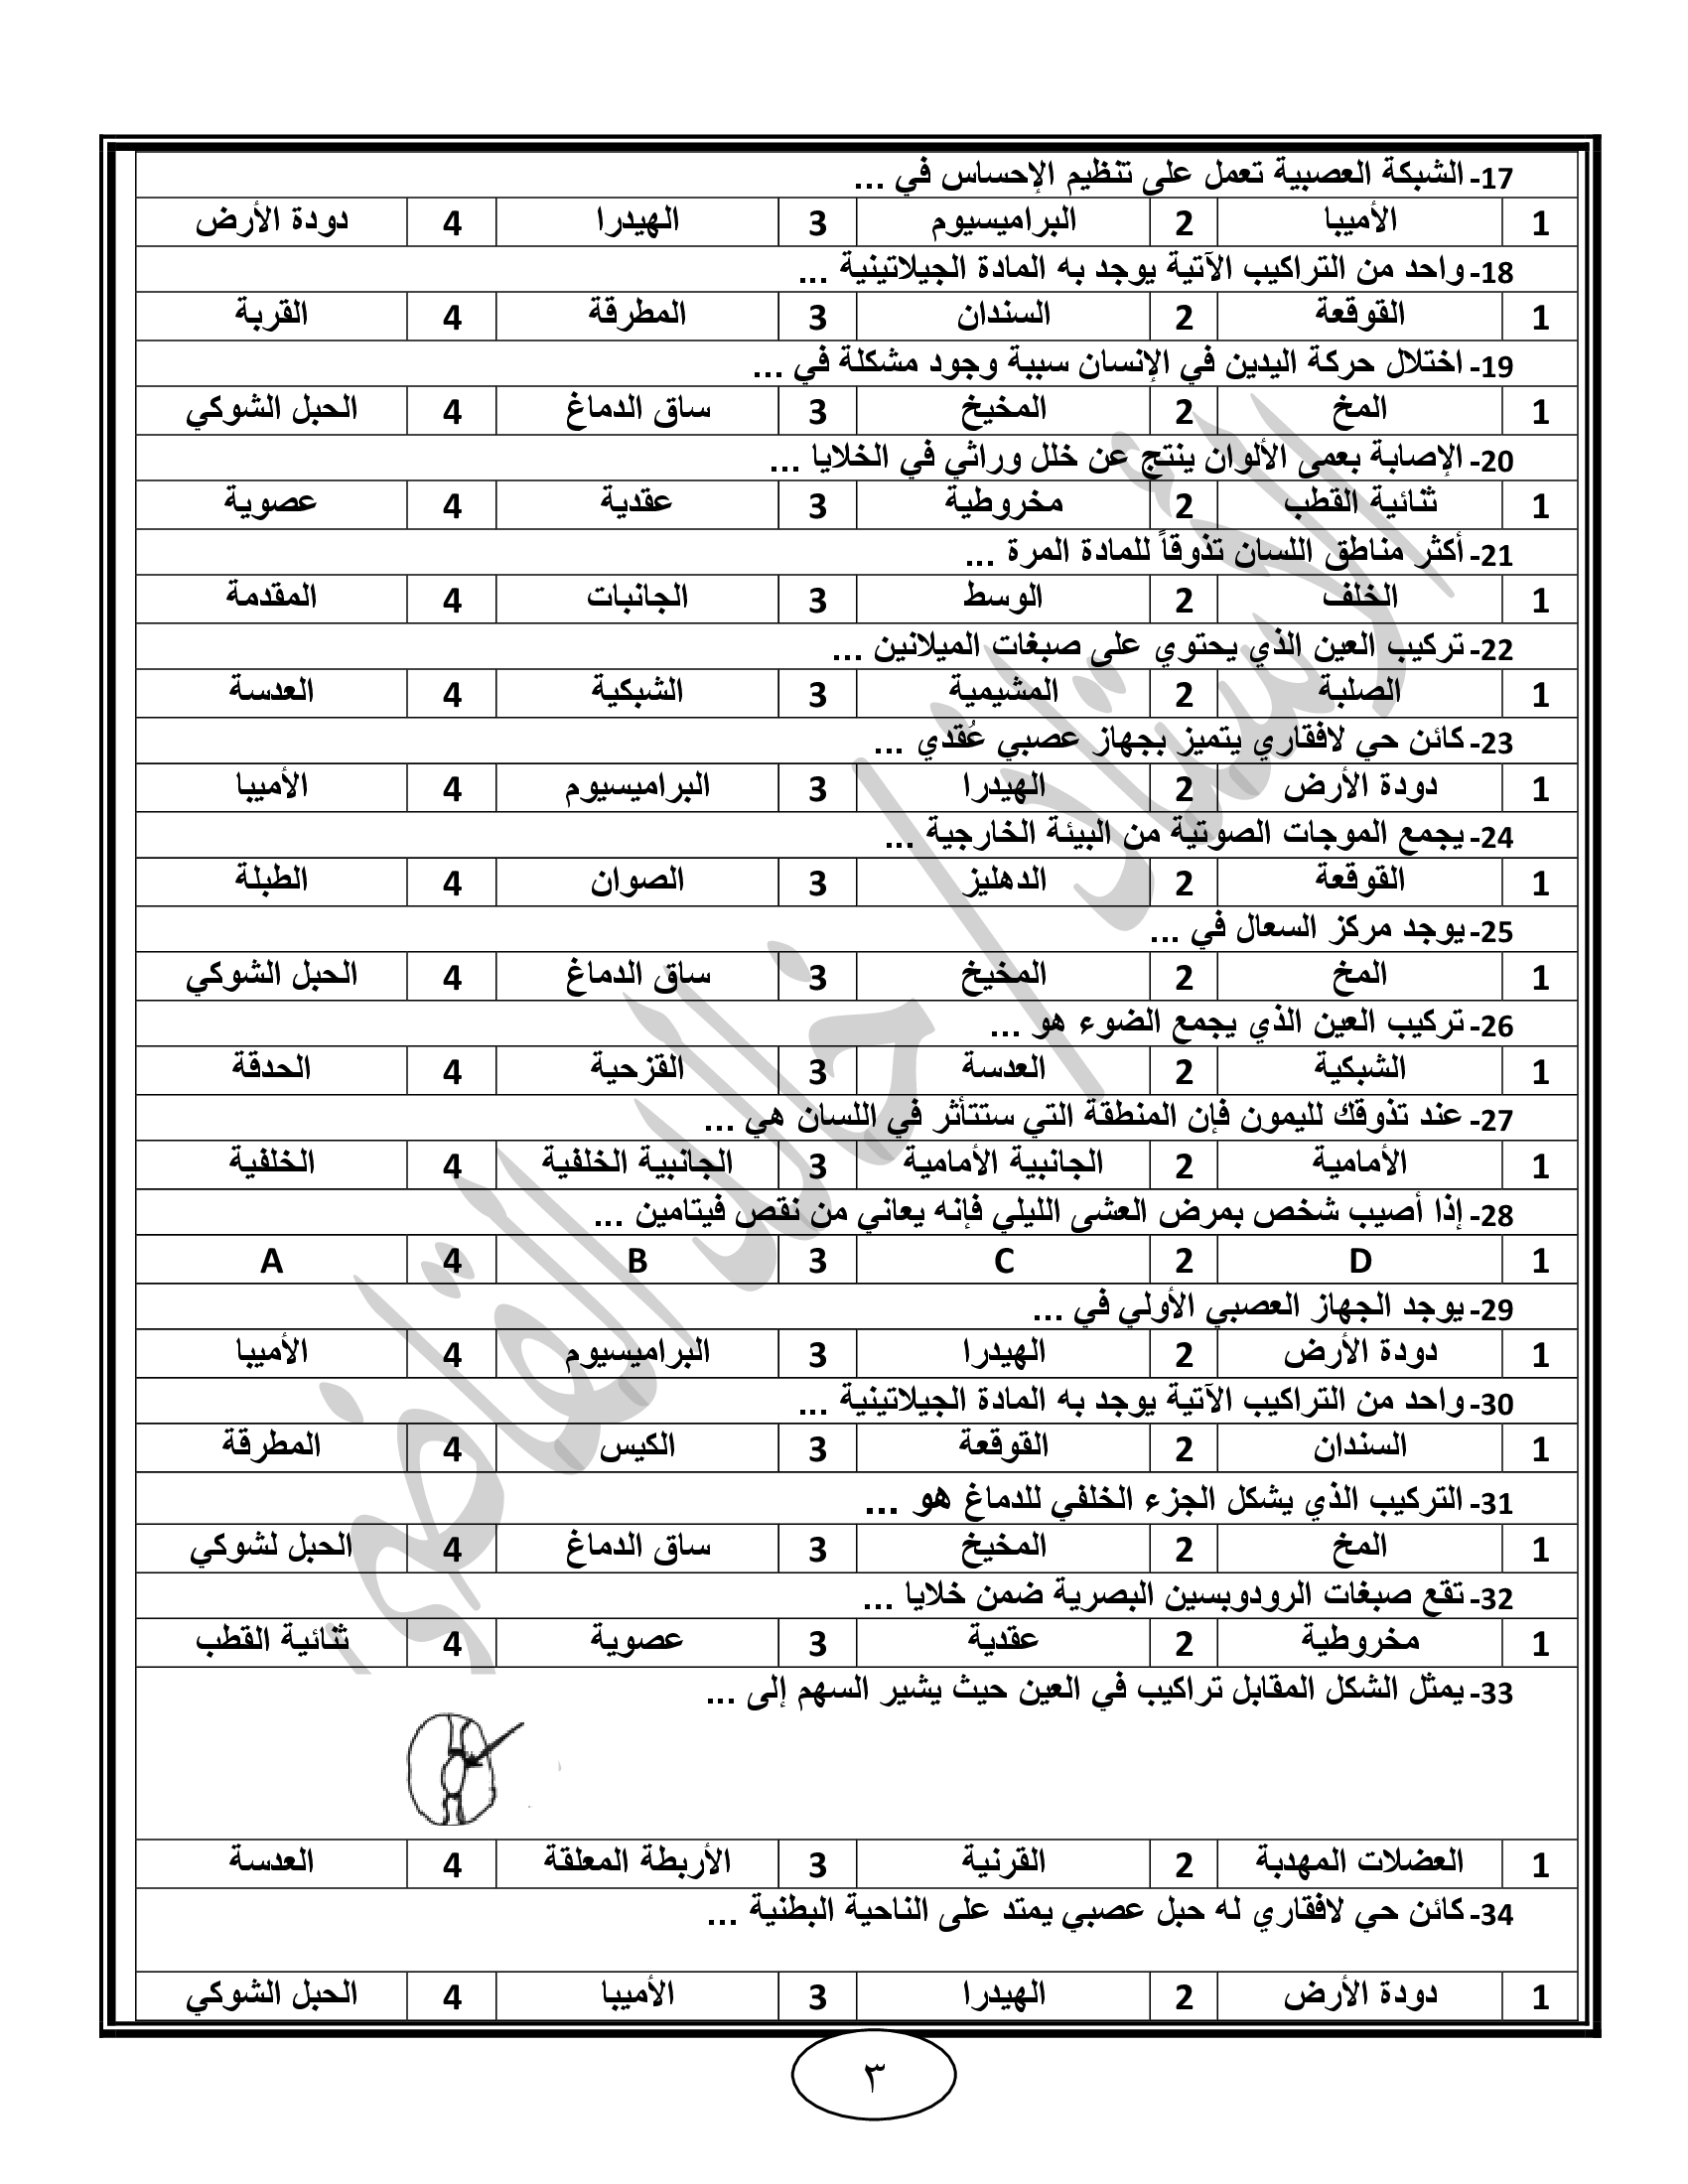 17- الشبكة العصبية تعمل على تنظيم الإحساس في ...
1 الأميبا 2 البراميسيوم 3 الهيدرا 4 دودة الأرض
18- واحد من التراكيب الآتية يوجد به المادة الجيلاتينية ...
1 القوقعة 2 السندان 3 المطرقة 4 القربة
19- اختلال حركة اليدين في الإنسان سببة وجود مشكلة في ...
1 المخ 2 المخيخ 3 ساق الدماغ 4 الحبل الشوكي
20- الإصابة بعمى الألوان ينتج عن خلل وراثي في الخلايا ...
1 ثنائية القطب 2 مخروطية 3 عقدية 4 عصوية
21- أكثر مناطق اللسان تذوقاً للمادة المرة ...
1 الخلف 2 الوسط 3 الجانبات 4 المقدمة
22- تركيب العين الذي يحتوي على صبغات الميلانين ...
1 الصلبة 2 المشيمية 3 الشبكية 4 العدسة
23- كائن حي لافقاري يتميز بجهاز عصبي عُقدي ...
1 دودة الأرض 2 الهيدرا 3 البراميسيوم 4 الأميبا
24- يجمع الموجات الصوتية من البيئة الخارجية ...
1 القوقعة 2 الدهليز 3 الصوان 4 الطبلة
25- يوجد مركز السعال في ...
1 المخ 2 المخيخ 3 ساق الدماغ 4 الحبل الشوكي
26- تركيب العين الذي يجمع الضوء هو ...
1 الشبكية 2 العدسة 3 القزحية 4 الحدقة
27- عند تذوقك لليمون فإن المنطقة التي ستتأثر في اللسان هي ...
1 الأمامية 2 الجانبية الأمامية 3 الجانبية الخلفية 4 الخلفية
28- إذا أصيب شخص بمرض العشى الليلي فإنه يعاني من نقص فيتامين ...
1 D 2 C 3 B 4 A
29- يوجد الجهاز العصبي الأولي في ...
1 دودة الأرض 2 الهيدرا 3 البراميسيوم 4 الأميبا
30- واحد من التراكيب الآتية يوجد به المادة الجيلاتينية ...
1 السندان 2 القوقعة 3 الكيس 4 المطرقة
31- التركيب الذي يشكل الجزء الخلفي للدماغ هو ...
1 المخ 2 المخيخ 3 ساق الدماغ 4 الحبل لشوكي
32- تقع صبغات الرودوبسين البصرية ضمن خلايا ...
1 مخروطية 2 عقدية 3 عصوية 4 ثنائية القطب
33- يمثل الشكل المقابل تراكيب في العين حيث يشير السهم إلى ...
1 العضلات المهدبة 2 القرنية 3 الأربطة المعلقة 4 العدسة
34- كائن حي لافقاري له حبل عصبي يمتد على الناحية البطنية ...
1 دودة الأرض 2 الهيدرا 3 الأميبا 4 الحبل الشوكي
٣
الأستاذ/ خالد القاضي